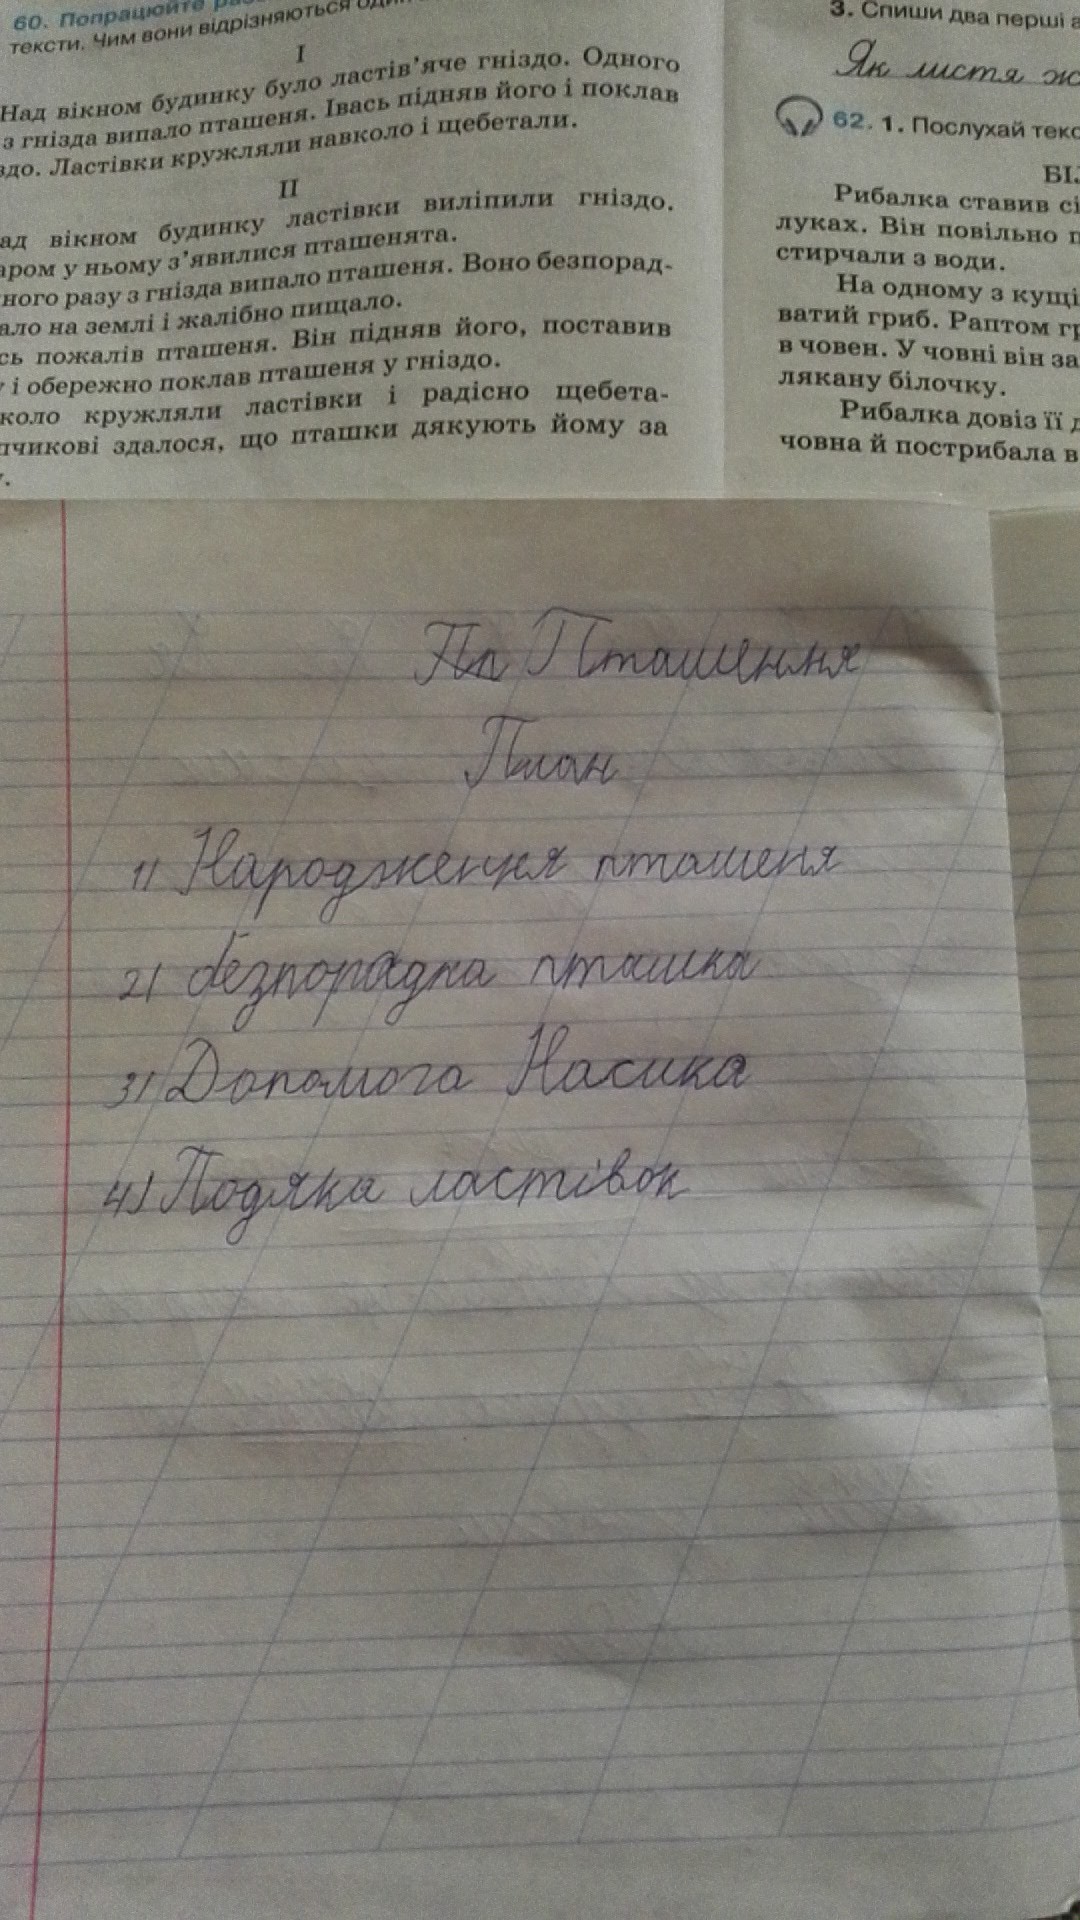 60. Попрацюйте
тексти. Чим вони відрізняються
I
Над вікном будинку було ластів’яче гніздо. Одного
з гнізда випало пташеня. Івась підняв його і поклав
здо. Ластівки кружляли навколо і щебетали.
II
ад вікном будинку ластівки виліпили гніздо.
аром у ньому з’явилися пташенята.
ного разу з гнізда випало пташеня. Воно безпорад-
ало на землі і жалібно пищало.
сь пожалів пташеня. Він підняв його, поставив
у і обережно поклав пташеня у гніздо.
коло кружляли ластівки і радісно щебета-
пчикові здалося, що пташки дякують йому за
у.
3. Спиши два перші а
Як листя ж
62. 1. Послухай текс
БІЛ
Рибалка ставив сі
луках. Він повільно п
стирчали з води.
На одному з кущі
ватий гриб. Раптом гр
в човен. У човні він за
лякану білочку.
Рибалка довіз її д
човна й пострибала в
Пташення
План
1) Народження пташеня
2) безпорадка пташка
3) Допомога
4) Подяка ластівок